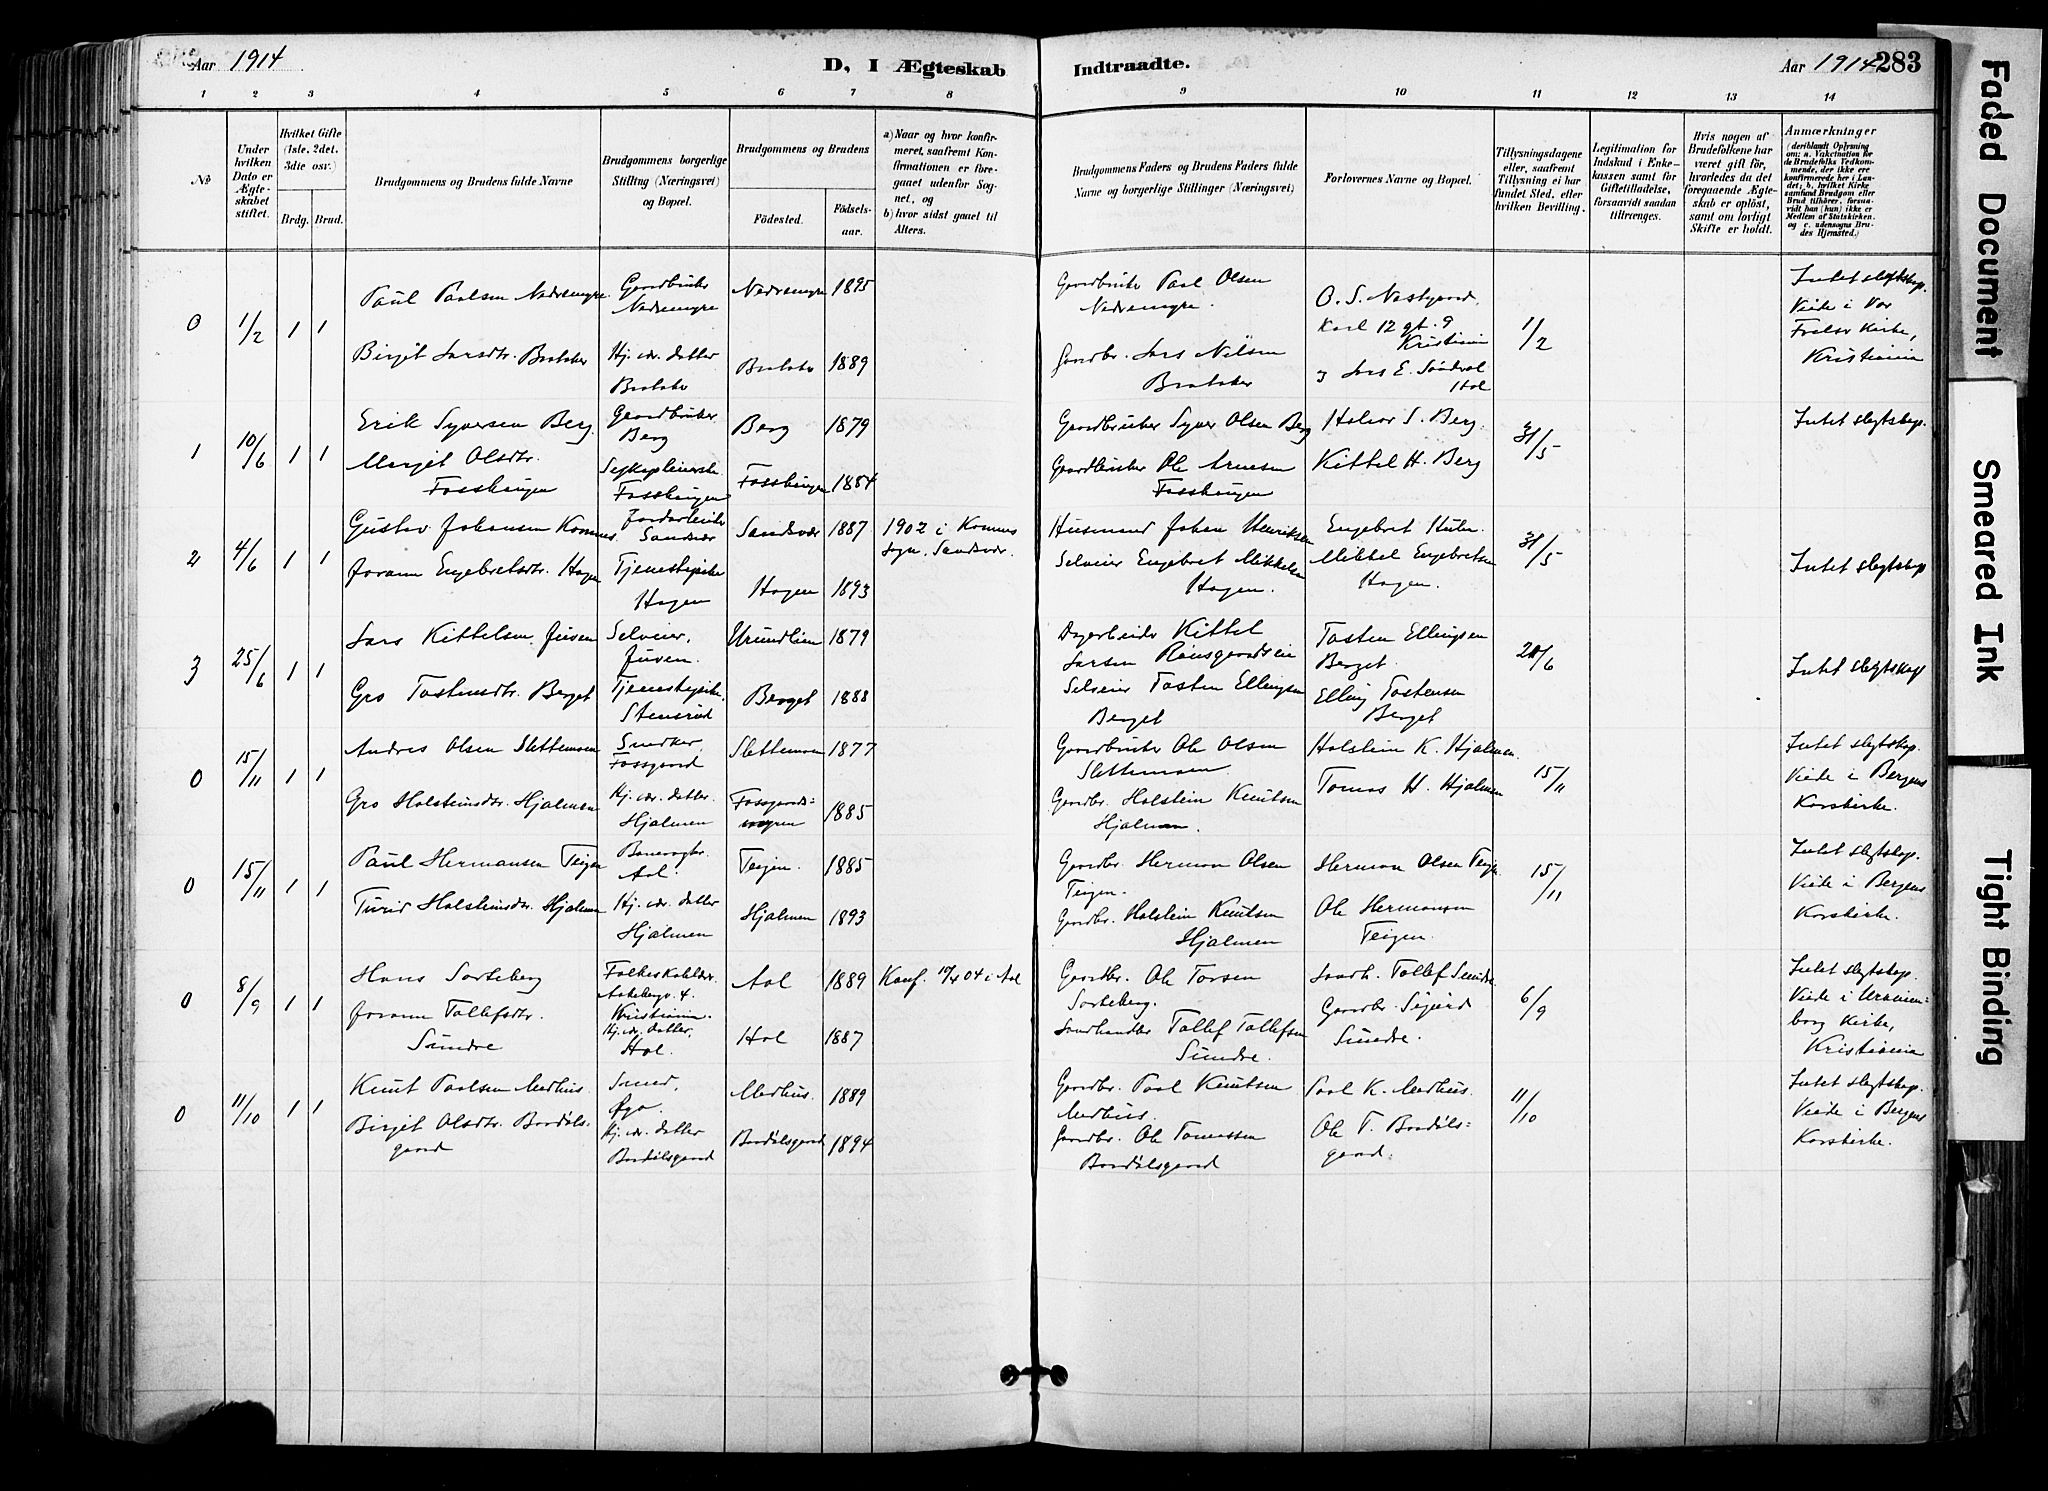 Aar 1914
D, I Ægteskab
Indtraadte.
Aar 1914
283
1 2 3 4 5 6 7 8 9 10 11 12 13 14
No
Under hvilken Dato er Ægteskabet stiftet.
Hvilket Gifte (1ste, 2det, 3die osv.)
Brdg. Brud.
Brudgommens og Brudens fulde Navne
Brudgommens borgerlige Stilling (Næringsvei) og Bopæl.
Brudgommens og Brudens
Födested.
Födsels-aar.
a) Naar og hvor konfirmeret, saafremt Konfirmationen er foregaaet udenfor Sognet, og
b) hvor sidst gaaet til Alters.
Brudgommens Faders og Brudens Faders fulde Navne og borgerlige Stillinger (Næringsvei)
Forlovernes Navne og Bopæl.
Tillysningsdagene eller, saafremt Tillysning ei har fundet Sted, efter hvilken Bevilling.
Legitimation for Indskud i Enkekassen samt for Giftetilladelse, forsaavidt saadan tiltrænges.
Hvis nogen af Brudefolkene har været gift för, hvorledes da det foregaaende Ægteskab er oplöst, samt om lovligt Skifte er holdt.
Anmærkninger (deriblandt Oplysning om: a. Vakcination for de Brudefolks Vedkommende, der ikke ere konfirmerede her i Landet; b. hvilket Kirkesamfund Brudgom eller Brud tilhörer, forsaavidt han (hun) ikke er Medlem af Statskirken. og c. udensogns Brudes Hjemsted.)
0 1/2 1 1
Paul Paalsen Nedremyre. Gaardbruker Nedremyre Nedremyre 1895
Gaardbruker Paal Olsen Nedremyre.
O. S. Nestgaard, Karl 12 gt. 9 Kristiania
1/2
Intet slegtskap. Viede i Vor Frelser Kirke, Kristiania
Birgit Larsdtr. Hj. vær. datter 1889
Gaardbr. Lars Nilsen
og Lars E. Sönderal Hol
1 10/6 1 1
Erik Syversen Berg. Gaardbruker Berg Berg 1879
Gaardbruker Syver Olsen Berg
Halvor S. Berg.
31/5
Intet slegtskap.
Margit Olsdtr. Fosshaugen Fosshaugen Fosshaugen 1884
Gaardbruker Ole Arnesen Fosshaugen
Kittel H. Berg
2 4/6 1 1
Gustav Johansen Komnes. Jordarbeider Sandsvær Sandsvær 1887 1902 i Komnes sogn, Sandsvær.
Husmand Johan Henriksen
Engebret
31/5
Intet slegtskap
Jorann Engebretsdtr. Hagen Tjenestepike Hagen Hagen 1893
Selveier Engebret Mikkelsen Hagen.
Mikkel Engebretsen Hagen.
3 25/6 1 1
Lars Kittelsen Juven Selveier, Juven. Urundlien 1879
Dagarbeider Kittel Larsen
Tosten Ellingsen Berget.
21/6
Intet slegtskap
Gro Tostensdtr. Berget Tjenestepike, Stensrud Berget 1888
Selveier Tosten Ellingsen Berget
Elling Tostensen Berget
0 15/11 1 1
Andres Olsen Slettemoen Snedker, Fossgaard Slettemoen 1877
Gaardbruker Ole Olsen Slettemoen.
Holstein K. Hjalmen.
15/11
Intet slegtskap. Viede i Bergens Korskirke.
Gro Holsteinsdtr. Hjalmen Hj. vær. datter. Hjalmen Fossgaards= 1885
Gaardbr. Holstein Knutsen Hjalmen.
Tomas H. Hjalmen
0 15/11 1 1
Paul Hermansen Teigen Banevogter. Aal. Teigen. 1885
Gaardbr. Herman Olsen Teigen.
Herman Olsen Teigen
15/11
Intet slegtskap. Viede i Bergens Korskirke.
Turid Holsteinsdtr. Hjalmen Hj. vær. datter Hjalmen Hjalmen 1893
Gaardbr. Holstein Knutsen Hjalmen
Ole Hermansen Teigen.
0 8/9 1 1
Hans Sorteberg Folkeskolelær. Kristiania. Aal 1889 Konf. 04 i Aal
Gaardbr. Ole Torsen Sorteberg.
Landh. Tollef Sundre.
6/9
Intet slegtskap. Viede i Uranienborg Kirke, Kristiania
Jorann Tollefsdtr. Sundre Hj. vær. datter, Hol. Hol 1887
Landhandler Tollef Tollefsen Sundre.
Gaardbr. Sigurd Sundre.
0 11/10 1 1
Knut Paalsen Medhus. Smed, Øyo. Medhus. 1889
Gaardbr. Paal Knutsen Medhus.
Paal K. Medhus.
11/10
Intet slegtskap. Viede i Bergens Korskirke.
Birgit Olsdtr. Bardölsgaard Hj. vær. datter Bardölsgaard Bardölsgaard 1894
Gaardbr. Ole Tomassen Bardölsgaard
Ole T. Bardöls=gaard.
Faded Document
Smeared Ink
Tight Binding